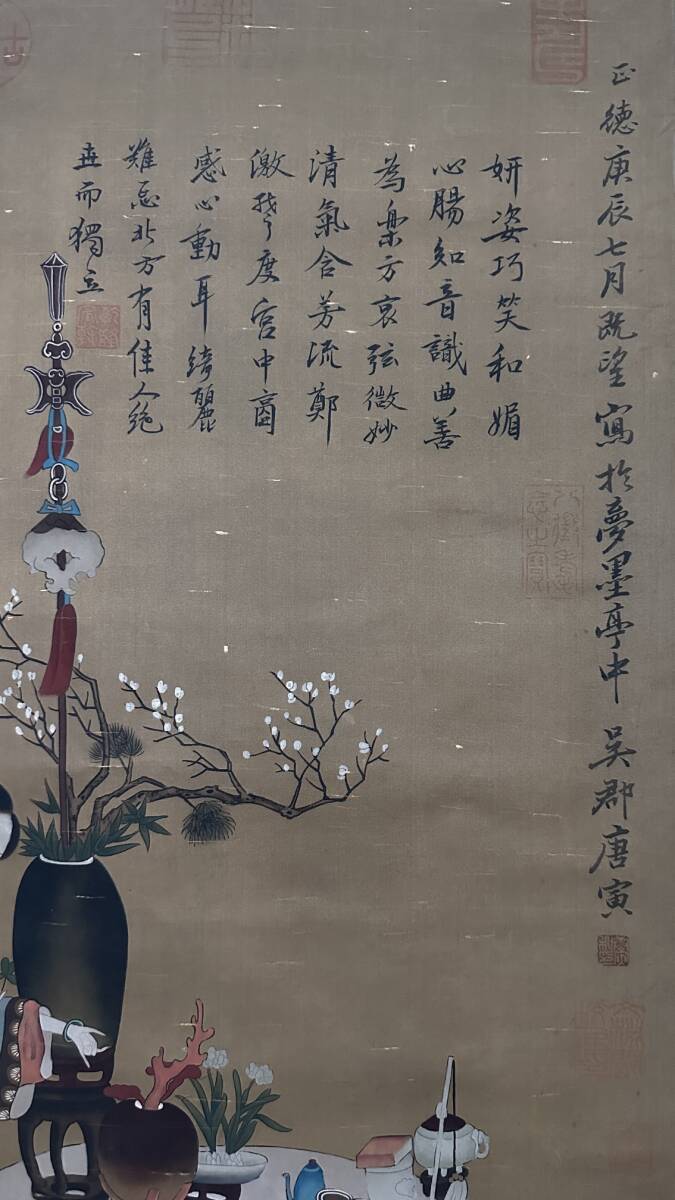 正德庚辰七月既望寫於夢墨亭中 吳郡唐寅
妍姿巧笑和媚
心腸知音識曲善
為樂方哀弦微妙
清氣含芳流鄭
激楚度宮中商
感心動耳綺麗
難忘北方有佳人絕
世而獨立